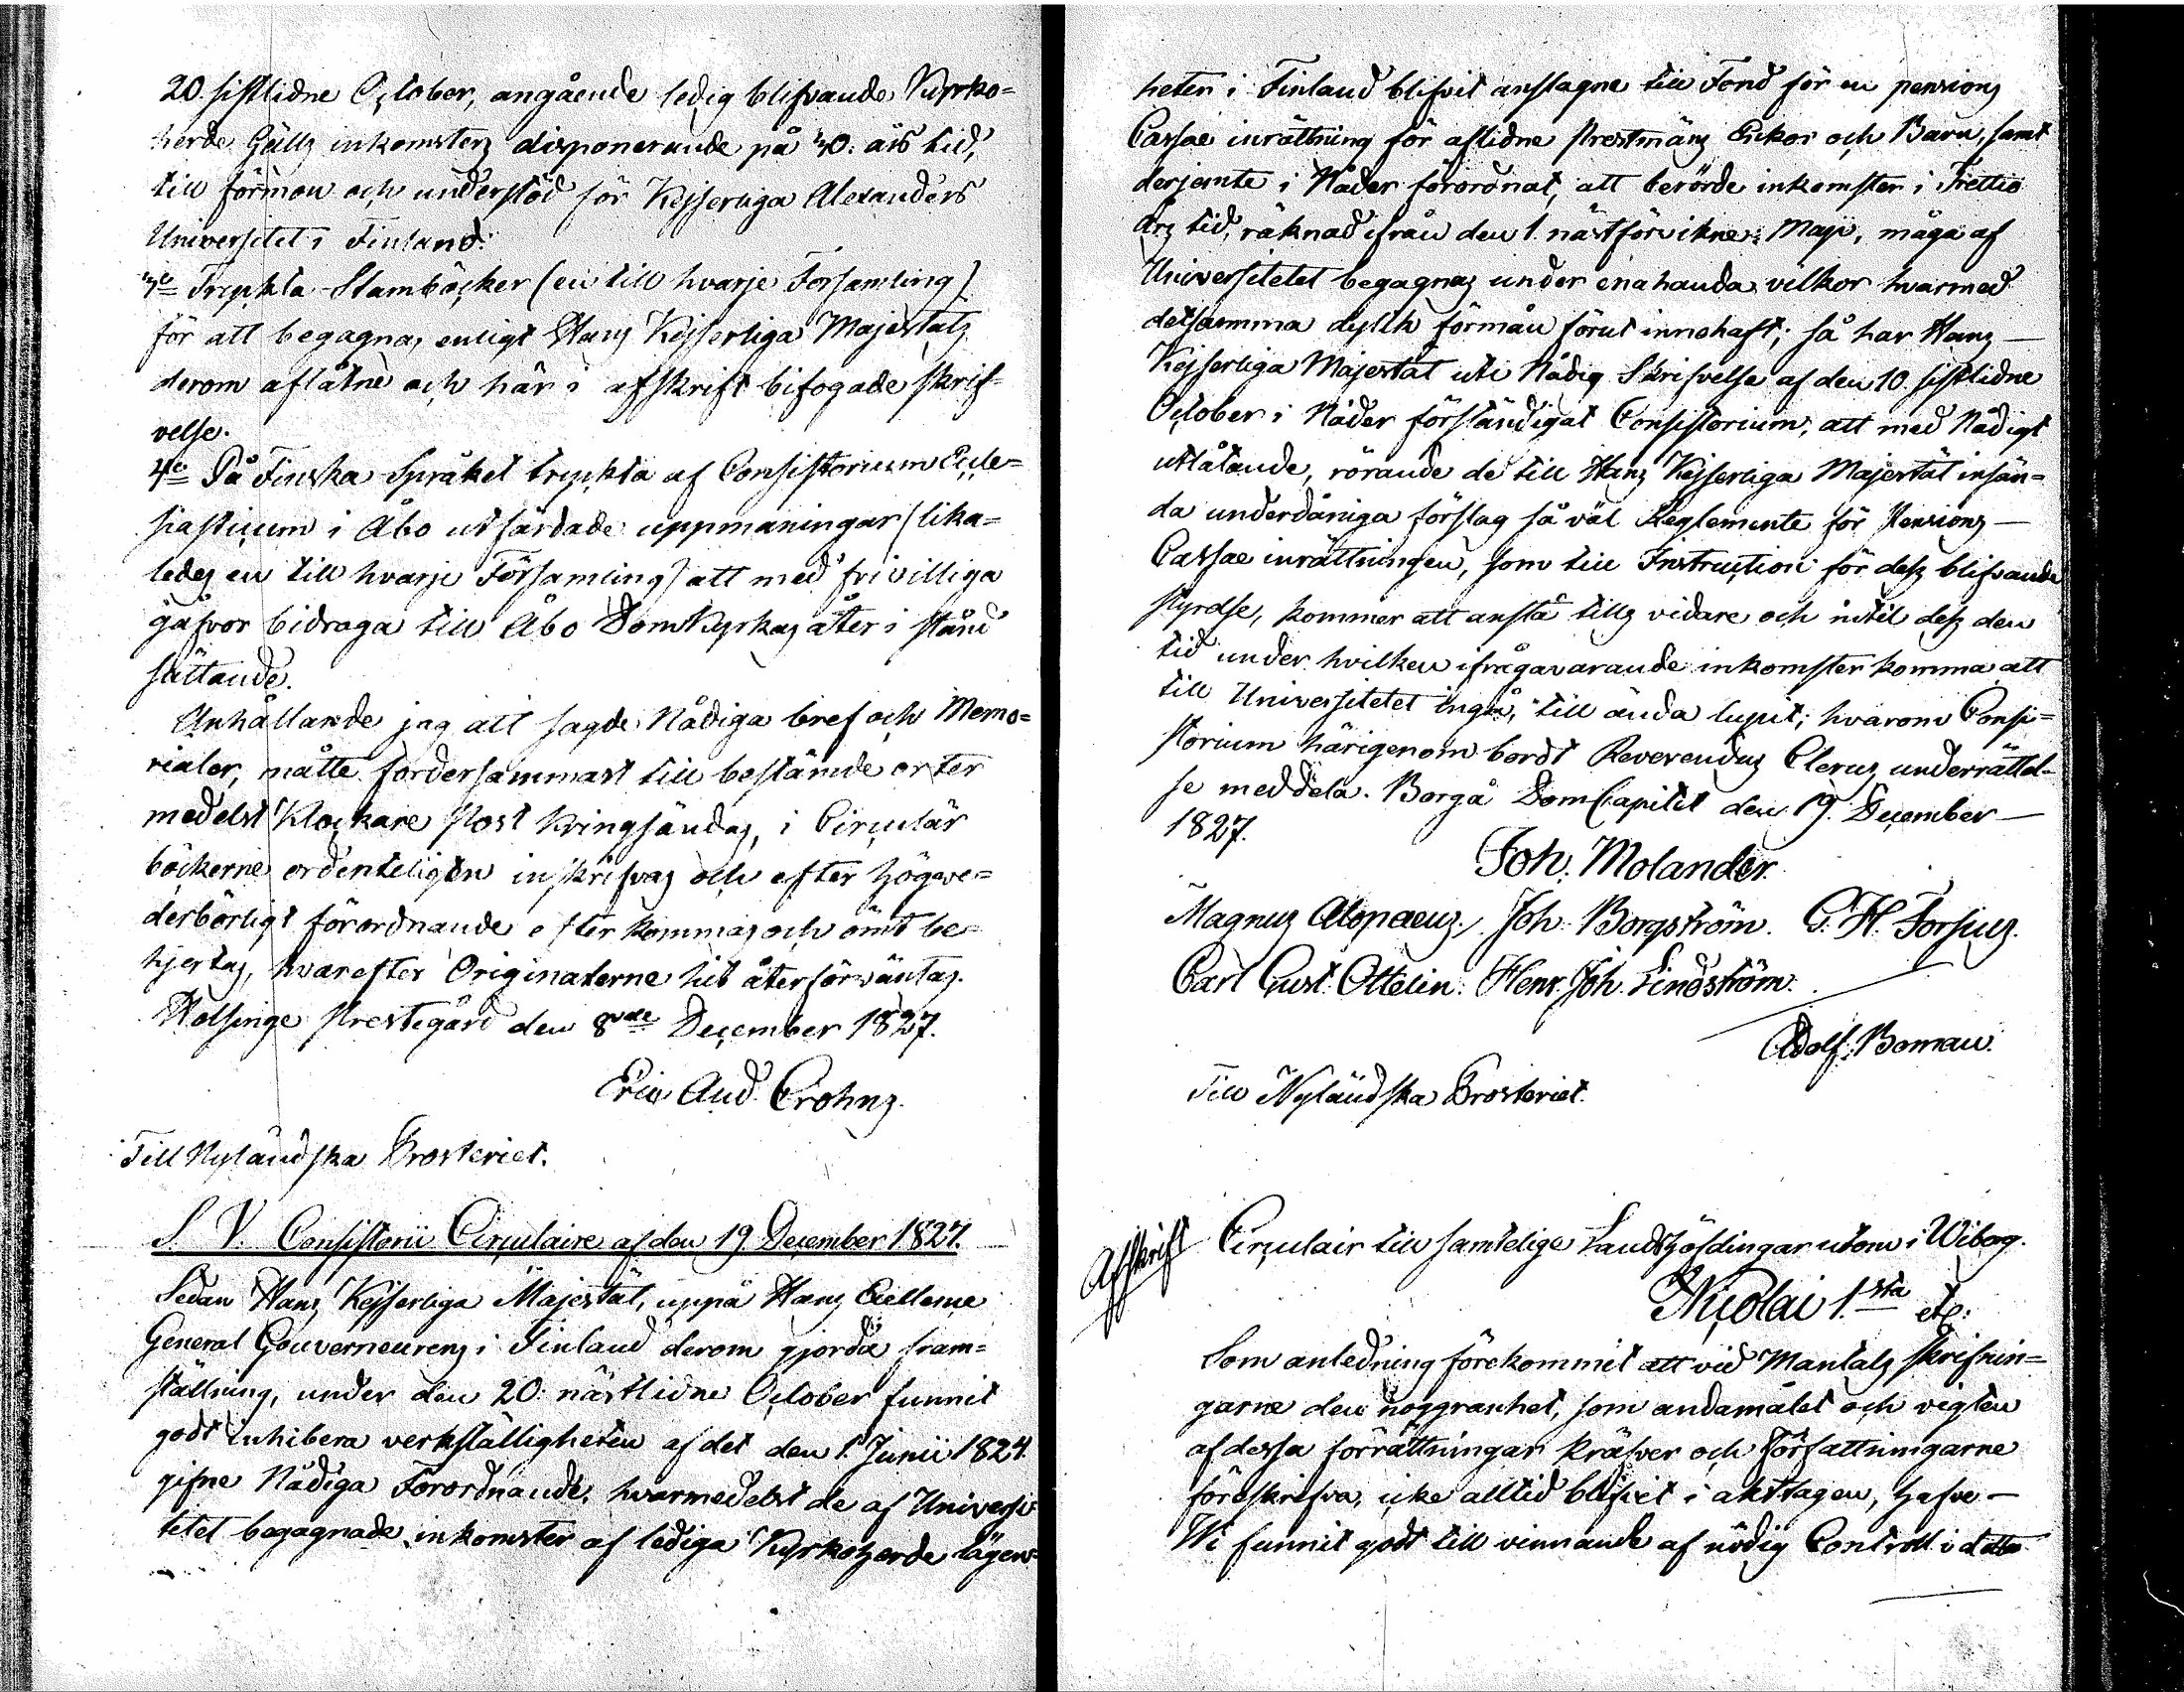 20. sistlidne October, angående ledig blifvande Kyrko=
herde Gälls inkomsters disponerande på 30. års tid,
till förmon och understöd för Kejserliga Alexanders
Universitet i Finland.
3o Tryckta Stamböcker (en till hvarje Församling)
för att begagnas enligt Hans Kejserliga Majestäts
derom aflåtne och här i afskrift bifogade skrif=
velse.
4o På Finska Språket tryckta af Consistorium Eccle=
siasticum i Åbo utfärdade uppmaningar (lika=
ledes en till hvarje Församling) att med frivilliga
gåfvor bidraga till Åbo Domkyrkas åter i stånd
sättande.
Anhållande jag att sagde Nådiga bref och Memo=
rialer, måtte fordersammast till bestämde orter
medelst Klockare Post kringsändas, i Circulär
böckerne ordenteligen inskrifvas och efter högve=
derbörligt förordnande efterkommas och ömt be=
hjertas, hvarefter Originalerne hit återförväntas.
Helsinge Prestegård den 8de December 1827.
Eric And. Crohns.
Till Nyländska Prosteriet.
S. V. Consistorii Circulaire af den 19 December 1827.
Sedan Hans Kejserliga Majestät, uppå Hans Excellence
General Gouverneurens i Finland derom gjorda fram=
ställning, under den 20. nästlidne October funnit
godt inhibera verkställigheten af det den 1. Junii 1824.
gifne Nådiga Förordnande, hvarmedelst de af Universi=
tetet begagnade inkomster af lediga Kyrkoherde lägen=
heter i Finland blifvit anslagne till Fond för en pensions
Cassae inrättning för aflidne Prestmäns Enkor och Barn, samt
derjemte i Nåder förordnat, att berörde inkomster i Trettio
års tid, räknad ifrån den 1. nästförvikne Maji, måga af
Universitetet begagnas under enahanda vilkor hvarmed
detsamma dylik förmån förut innehaft; så har Hans
Kejserliga Majestät uti Nådig Skrifvelse af den 10. sistlidne
October i Nåder förständigat Consistorium, att med Nådigt
utlåtande, rörande de till Hans Kejserliga Majestät insän=
da underdåniga förslag så väl Reglemente för Pensions
Cassae inrättningen, som till Instruction för dess blifvande
styrelse, kommer att anstå tills vidare och intil dess den
tid under hvilken ifrågavarande inkomster komma att
till Universitetet ingå, till ända lupit; hvarom Consi=
storium härigenom bordt Reverendus Clerus underrättel-
se meddela. Borgå DomCapitel den 19. December
1827.
Joh. Molander.
Magnus Alopaeus. Joh. Borgström. G. H. Forsius.
Carl Gust. Ottelin. Henr. Joh. Lindström.
Adolf Boman.
Till Nyländska Prosteriet.
Afskrift
Circulair till samtelige Landshöfdingar utom i Wiborg.
Nicolai 1.sta etc:
Som anledning förekommit att vid Mantals skrifnin=
garne den noggranhet, som andamålet och vigten
af dessa förrättningar kräfver och Författningarne
föreskrifva, icke alltid blifvit i akttagen, hafve
Wi funnit godt till vinnande af nödig Controll i detta